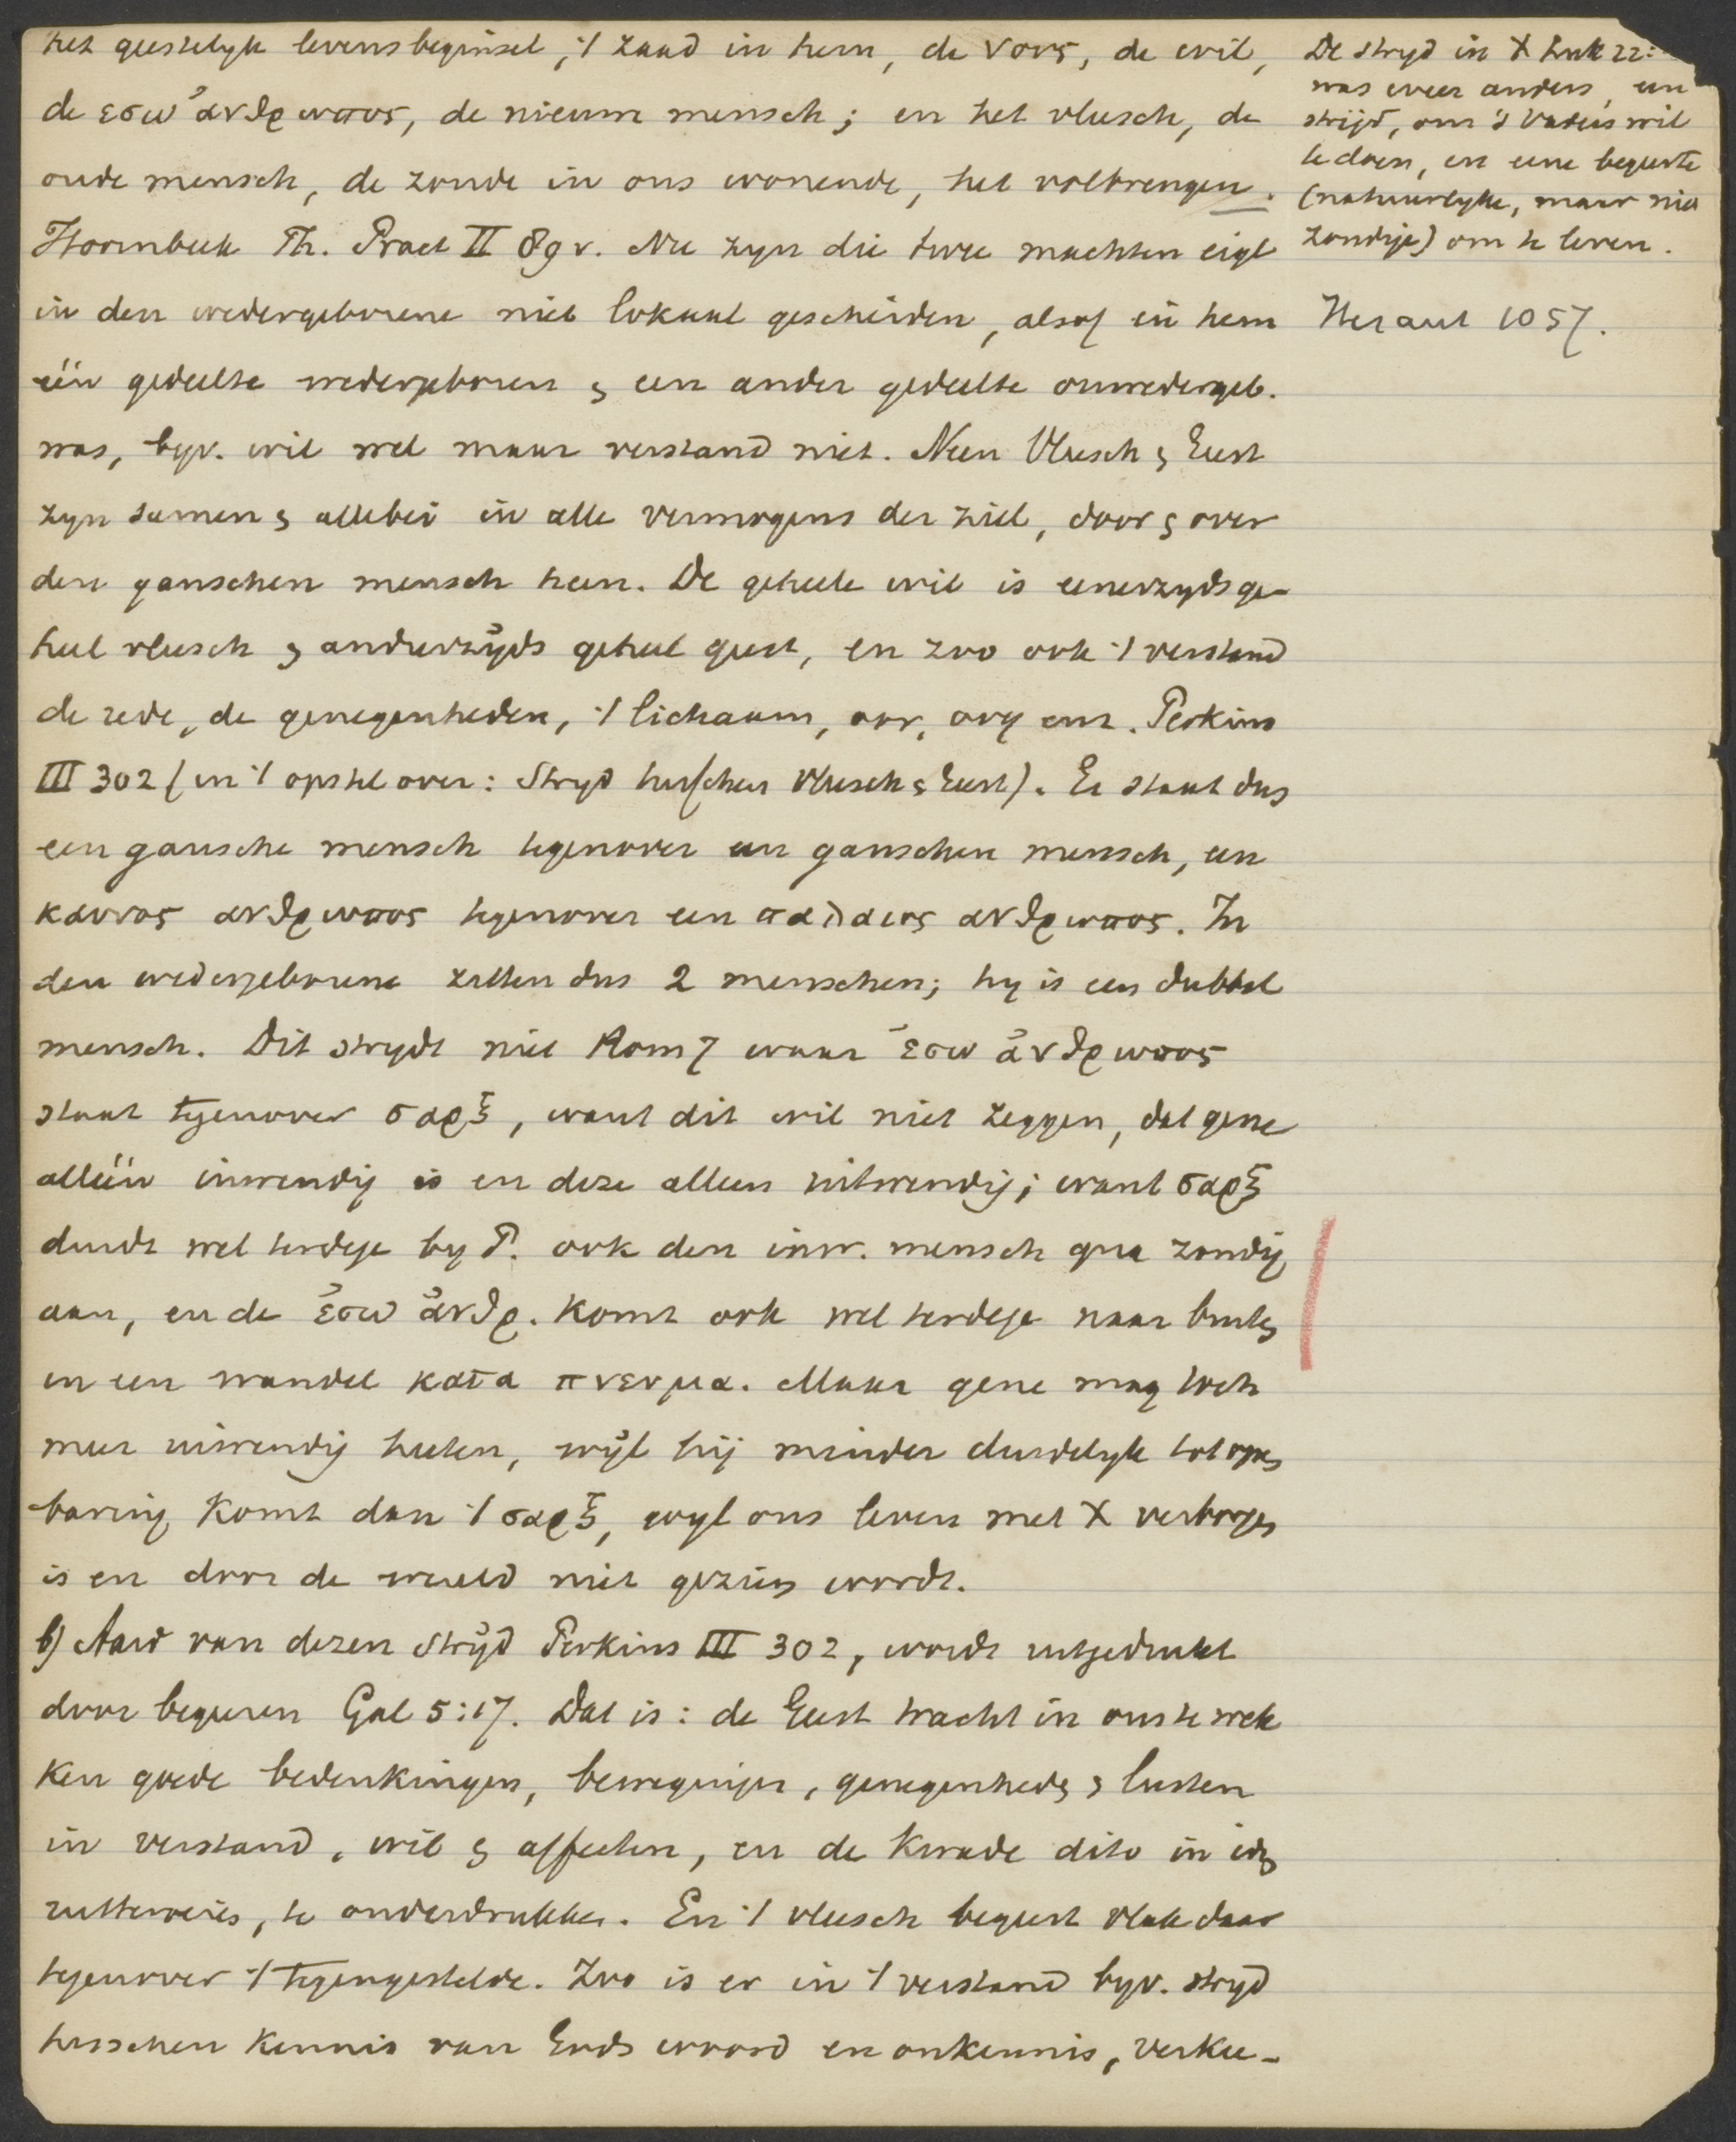 het geestelyk levensbeginsel, 't zaad in hem, de νους, de wil,
de εσω ἀνθρωπος, de nieuwe mensch; en het vleesch, de
oude mensch, de zonde in ons wonende, het volbrengen.
Hoornbeek Th. Pract II 89 v. Nu zyn die twee machten eigl
in den wedergeborene niet lokaal gescheiden, alsof in hem
één gedeelte wedergeboren & een ander gedeelte onwedergeb.
was, byv. wil wel maar verstand niet. Neen Vleesch & Geest
zyn samen & allebei in alle vermogens der ziel, door & over
den ganschen mensch heen. De geheele wil is eenerzyds ge-
heel vleesch & anderzyds geheel geest, en zoo ook 't verstand
de rede, de genegenheden, 't lichaam, oor, oog enz. Perkins
III 302 (in 't opstel over: Stryd tusschen Vleesch & Geest). Er staat dus
een gansche mensch tegenover een ganschen mensch, een
καινος ανθρωπος tegenover een παλαιος ανθρωπος. In
den wedergeborene zitten dus 2 menschen; hy is een dubbel
mensch. Dit strydt niet Rom 7 waar ἐσω ἀνθρωπος
staat tegenover σαρξ, want dit wil niet zeggen, dat gene
alléén inwendig is en deze alleen uitwendig; want σαρξ
duidt wel terdege by P. ook den inw. mensch qua zondig
aan, en de ἐσω ἀνθρ. komt ook wel terdege naar buiten
in een wandel κατα πνευμα. Maar gene mag toch
meer inwendig heeten, wyl hij minder duidelyk tot open
baring komt dan 't σαρξ, wyl ons leven met X verborgen
is en door de wereld niet gezien wordt.
b) Aard van dezen stryd Perkins III 302, wordt uitgedrukt
door begeeren Gal 5:17. Dat is: de Geest tracht in ons te wek
ken goede bedenkingen, bewegingen, genegenheden & lusten
in verstand, wil & affecten, en de kwade dito in
te onderdrukken. En 't vleesch begeert vlak daar
tegenover 't tegengestelde. Zoo is er in 't verstand byv. stryd
tusschen kennis van Gods woord en onkennis, verkee-
De stryd in X Luk 22:
was weer anders, een
strijd, om 's Vaders wil
te doen, en eene begeerte
(natuurlyke, maar niet
zondige) om te leven.
Heraut 1057.